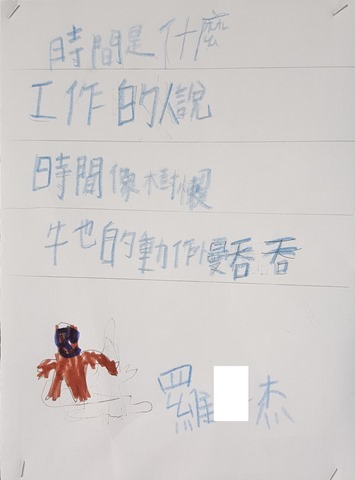 時間是什麼
工作的人說
時間像樹懶
牛也的動作慢吞吞
羅 杰